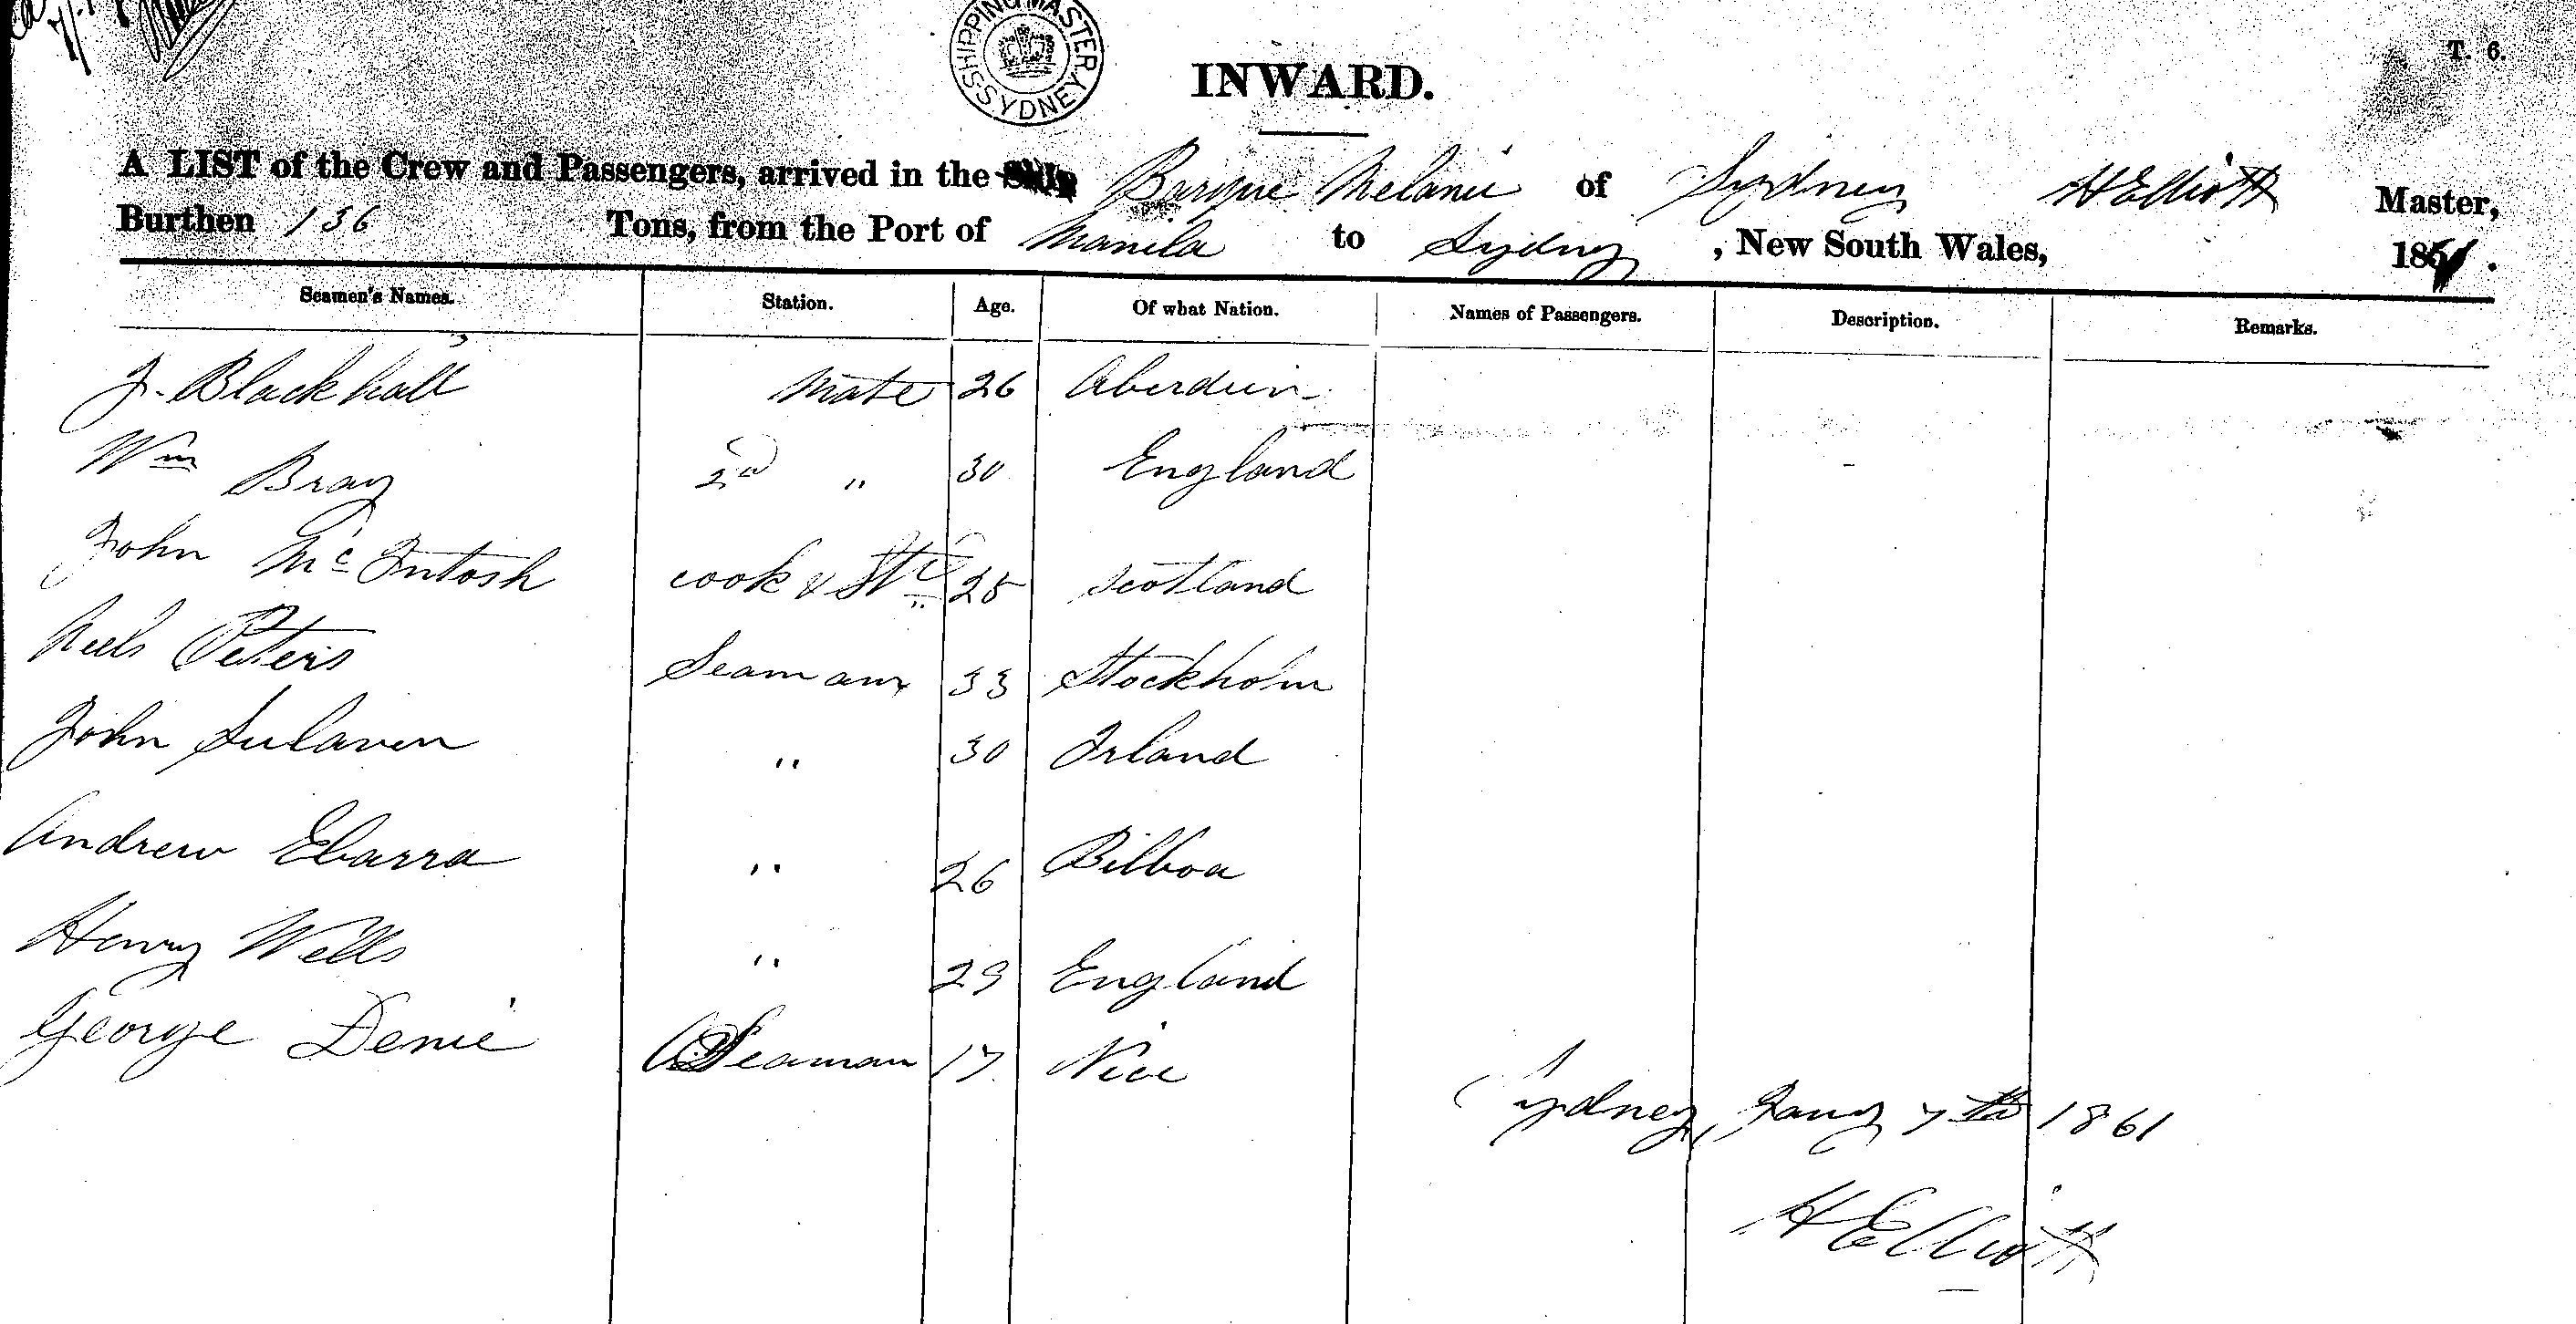 SHIPPING MASTER SYDNEY
T. 6.
INWARD.
A LIST of the Crew and Passengers, arrived in the Ship Barque Melanie of Sydney H Elliott Master,
Burthen 136 Tons, from the Port of Manila to Sydney , New South Wales, 1861.
Seamen's Names. Station. Age. Of what Nation. Names of Passengers. Description. Remarks.
J. Blackhall Mate 26 Aberdein
Wm Bray 2d " 30 England
John McIntosh cook & Std 25 Scotland
Neels Peters Seaman 33 Stockholm
John Sulaven " 30 Irland
Andrew Ebarra " 26 Bilboa
Henry Wells " 29 England
George Denie Seaman 17 Nice
Sydney, Jany 7th 1861
H Elliott